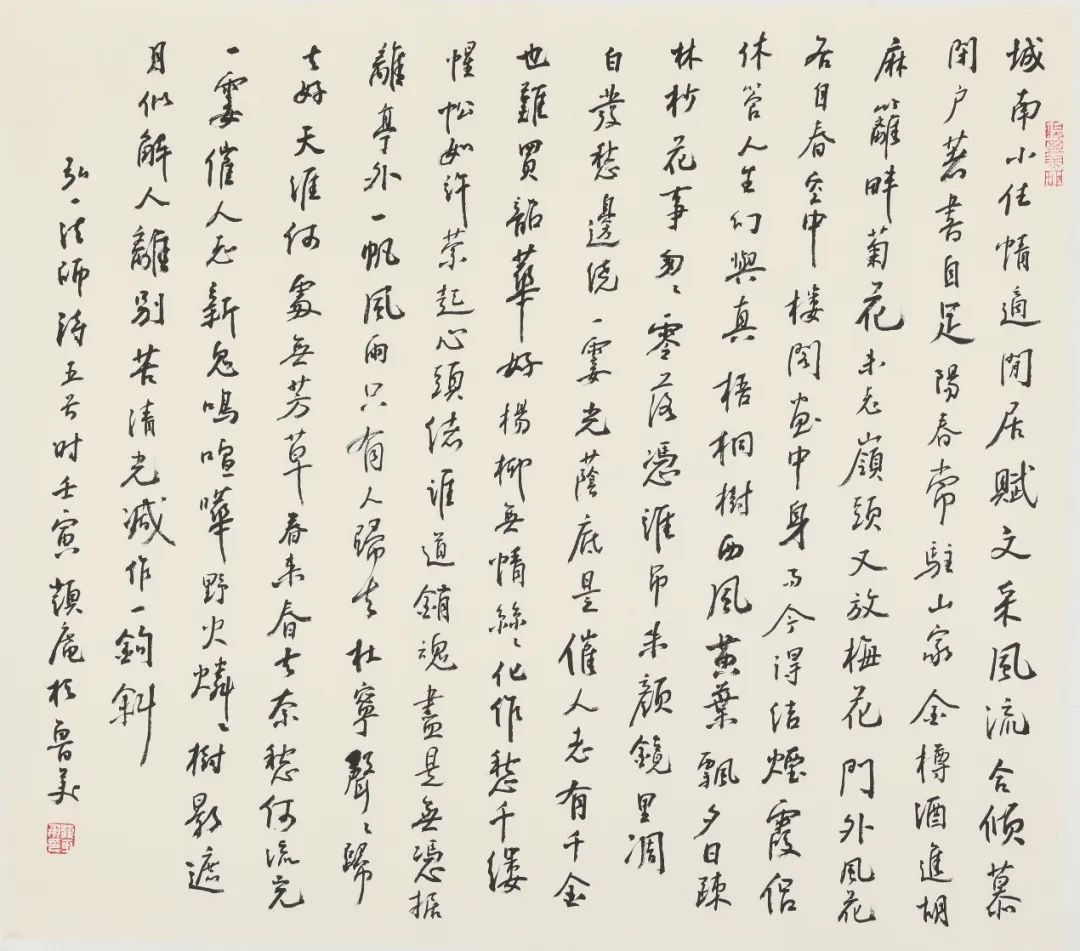 城南小住情適閒居賦文采風流合傾慕
閉户著書自足陽春常駐山家金樽酒進胡
麻籬畔菊花未老嶺頭又放梅花門外風花
各自春空中樓閣畫中身而今得結煙霞侣
休管人生幻與真梧桐樹西風黄葉飄夕日疎
林杪花事匆〻零落憑誰吊朱顏鏡里凋
白發愁邊绕一霎光蔭底是催人老有千金
也難買韶華好楊柳無情絲〻化作愁千縷
惺忪如許萦起心頭绪誰道銷魂盡是無憑据
離亭外一帆風雨只有人歸去杜寧聲〻歸
去好天涯何處無芳草春來春去奈愁何流光
一霎催人老新鬼鳴喧嘩野火燐〻樹影遮
月似解人離别苦清光减作一鉤斜
弘一法師詩五首时壬寅頤庵於魯美